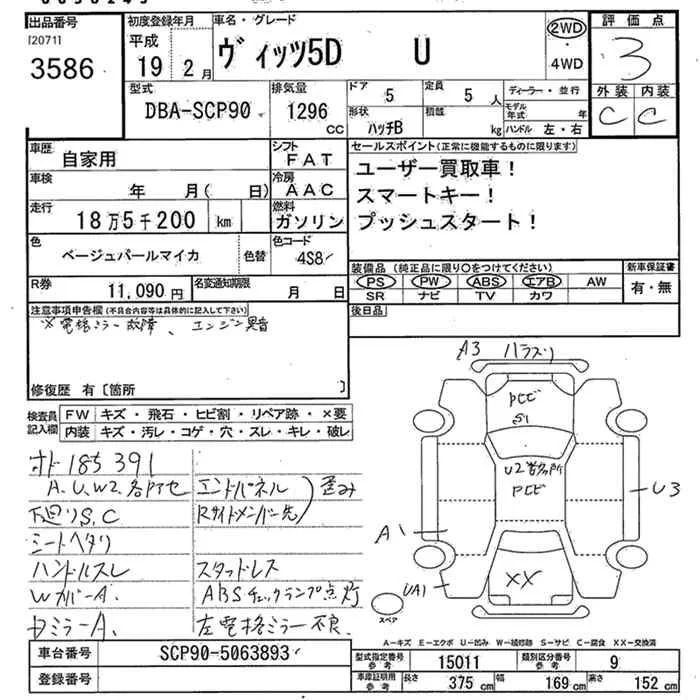 出品番号
I20711
3586
初度登録年月
平成
19年 2月
車名・グレード
ヴィッツ5D U
2WD
・
4WD
評価点
3
外装 内装
C C
型式
DBA-SCP90
排気量
1296
CC
ドア
5
定員
5人
形状
ハッチB
積載
kg
ディーラー・並行
モデル年式 年
ハンドル 左・右
車歴
自家用
シフト
FAT
車検
年 月( 日)
冷房
AAC
走行
18万5千200 km
燃料
ガソリン
色
ベージュパールマイカ
色替
色コード
4S8
R券
11,090円
名変通知期限
月 日
セールスポイント(正常に機能するものに限ります)
ユーザー買取車!
スマートキー!
プッシュスタート!
装備品(純正品に限り○をつけてください)
PS PW ABS エアB AW
SR ナビ TV カワ
新車保証書
有・無
後日品
注意事項申告欄(不具合内容等は具体的に記入して下さい)
※電格ミラー故障、エンジン異音
修復歴 有〔箇所 〕
検査員記入欄
FW キズ・飛石・ヒビ割・リペア跡・×要
内装 キズ・汚レ・コゲ・穴・スレ・キレ・破レ
オド185391
A.U.W2.各所セ
下廻りS.C
シートヘタリ
ハンドルスレ
WカバーA.
DミラーA.
エンドパネル
Rサイドメンバー先
歪み
スタッドレス
ABSチェックランプ点灯
左電格ミラー不良.
A3 バラズリ
PCビ
S1
U2多数所
PCビ
U3
A1
UA1
XX
スペア
A-キズ E-エクボ U-凹み W-補修跡 S-サビ C-腐食 XX-交換済
車台番号
SCP90-5063893
登録番号
型式指定番号
参考
15011
類別区分番号
参考
9
車庫証明用
参考
長さ 375 cm
幅 169 cm
高さ 152 cm